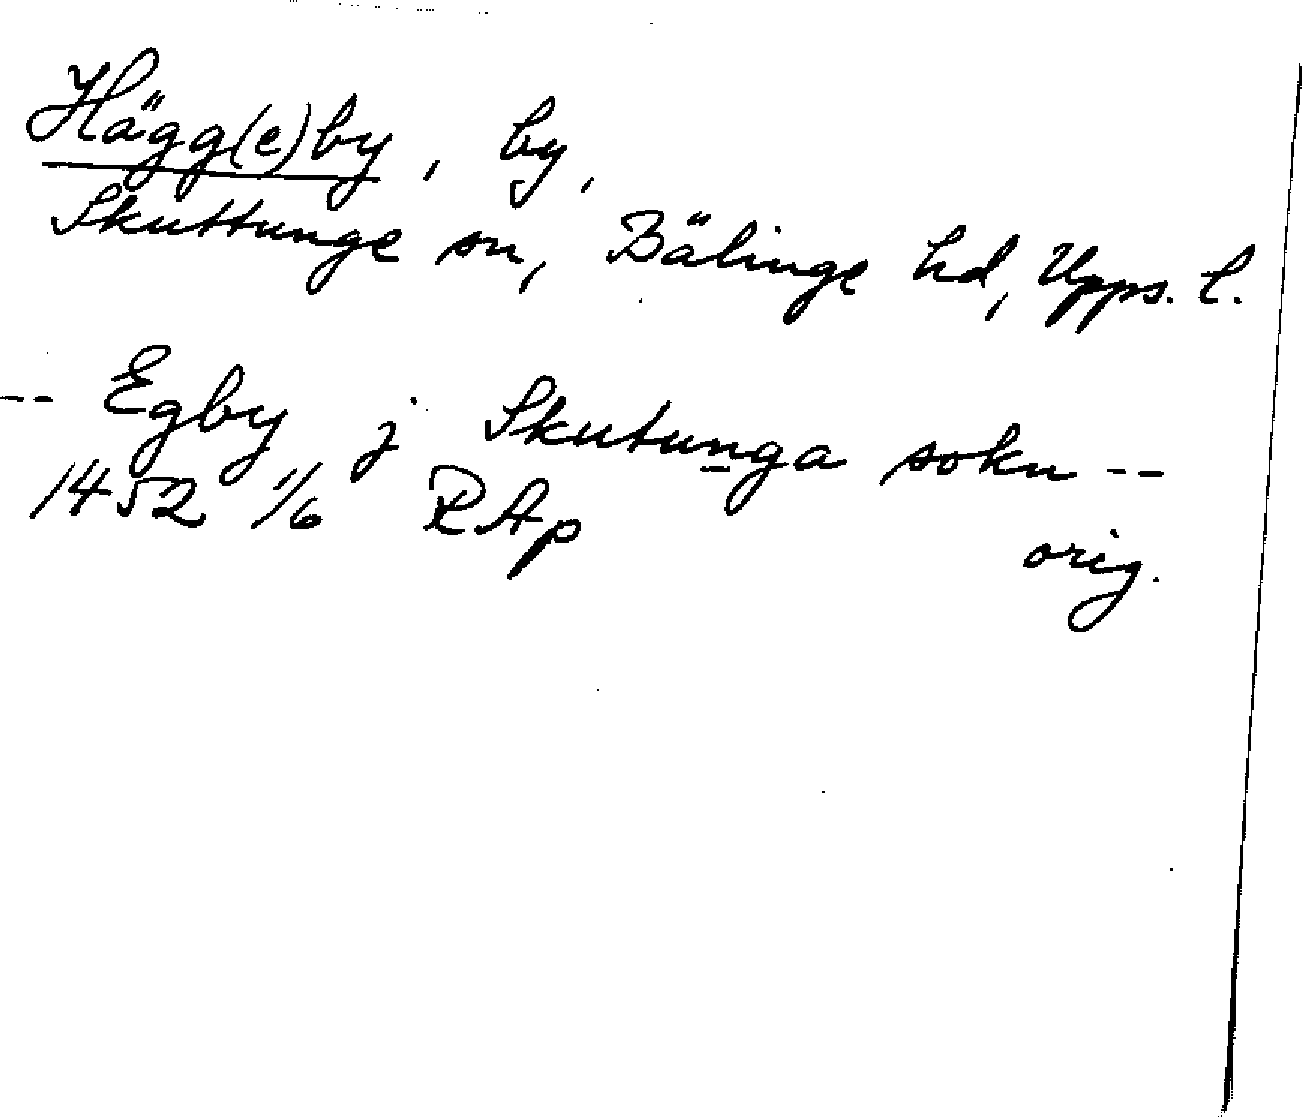 Hägg(e)by, by,
Skuttunge sn, Bälinge hd, Upps. l.
-- Egby j Skutunga sokn --
1452 1/6 RAp
orig.